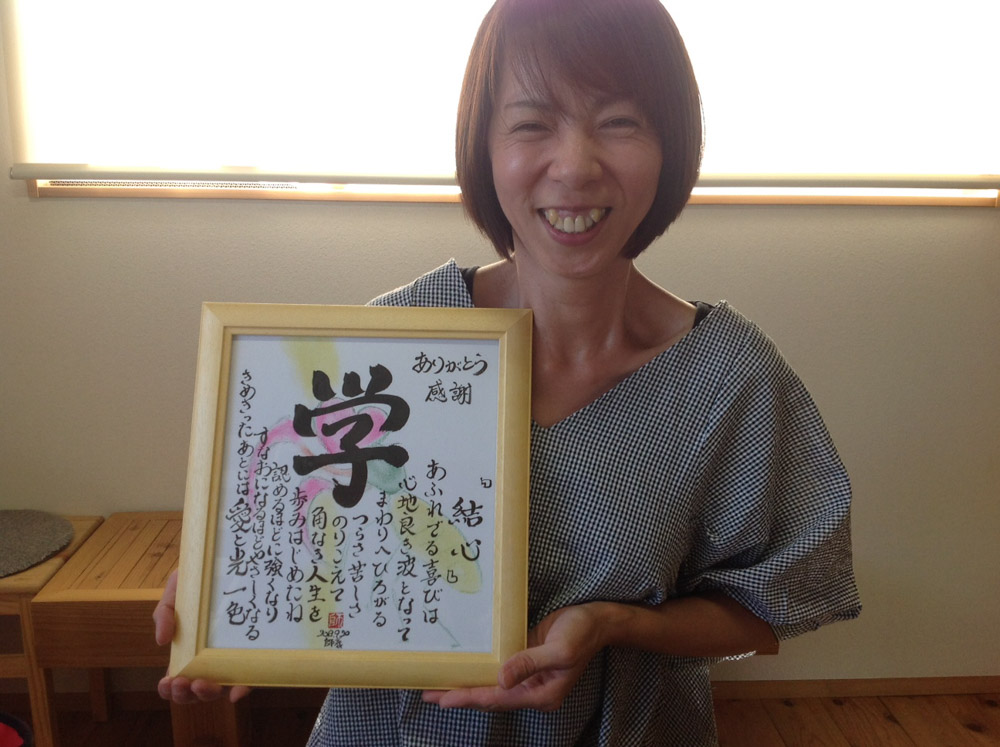 ありがとう
感謝
学
『結心』
あふれでる喜びは
心地良き波となって
まわりへひろがる
つらさ苦しさ
のりこえて
角なる人生を
歩みはじめたね
認めるほどに強くなり
すなおになるほどやさしくなる
きめきったあとには愛と光一色